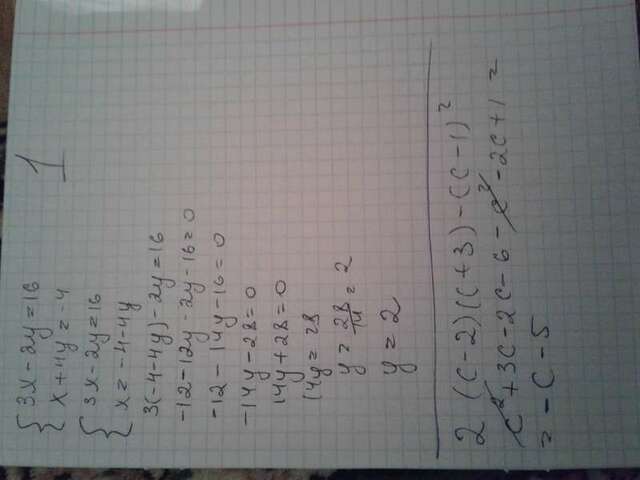 1
3x - 2y = 16
x + 4y = -4
3x - 2y = 16
x = -4 - 4y
3(-4-4y) - 2y = 16
-12 - 12y - 2y - 16 = 0
-12 - 14y - 16 = 0
-14y - 28 = 0
14y + 28 = 0
14y = 28
y = 28/14 = 2
y = 2
2 (c-2)(c+3) - (c-1)²
c² + 3c - 2c - 6 - c² - 2c + 1 =
= -c - 5